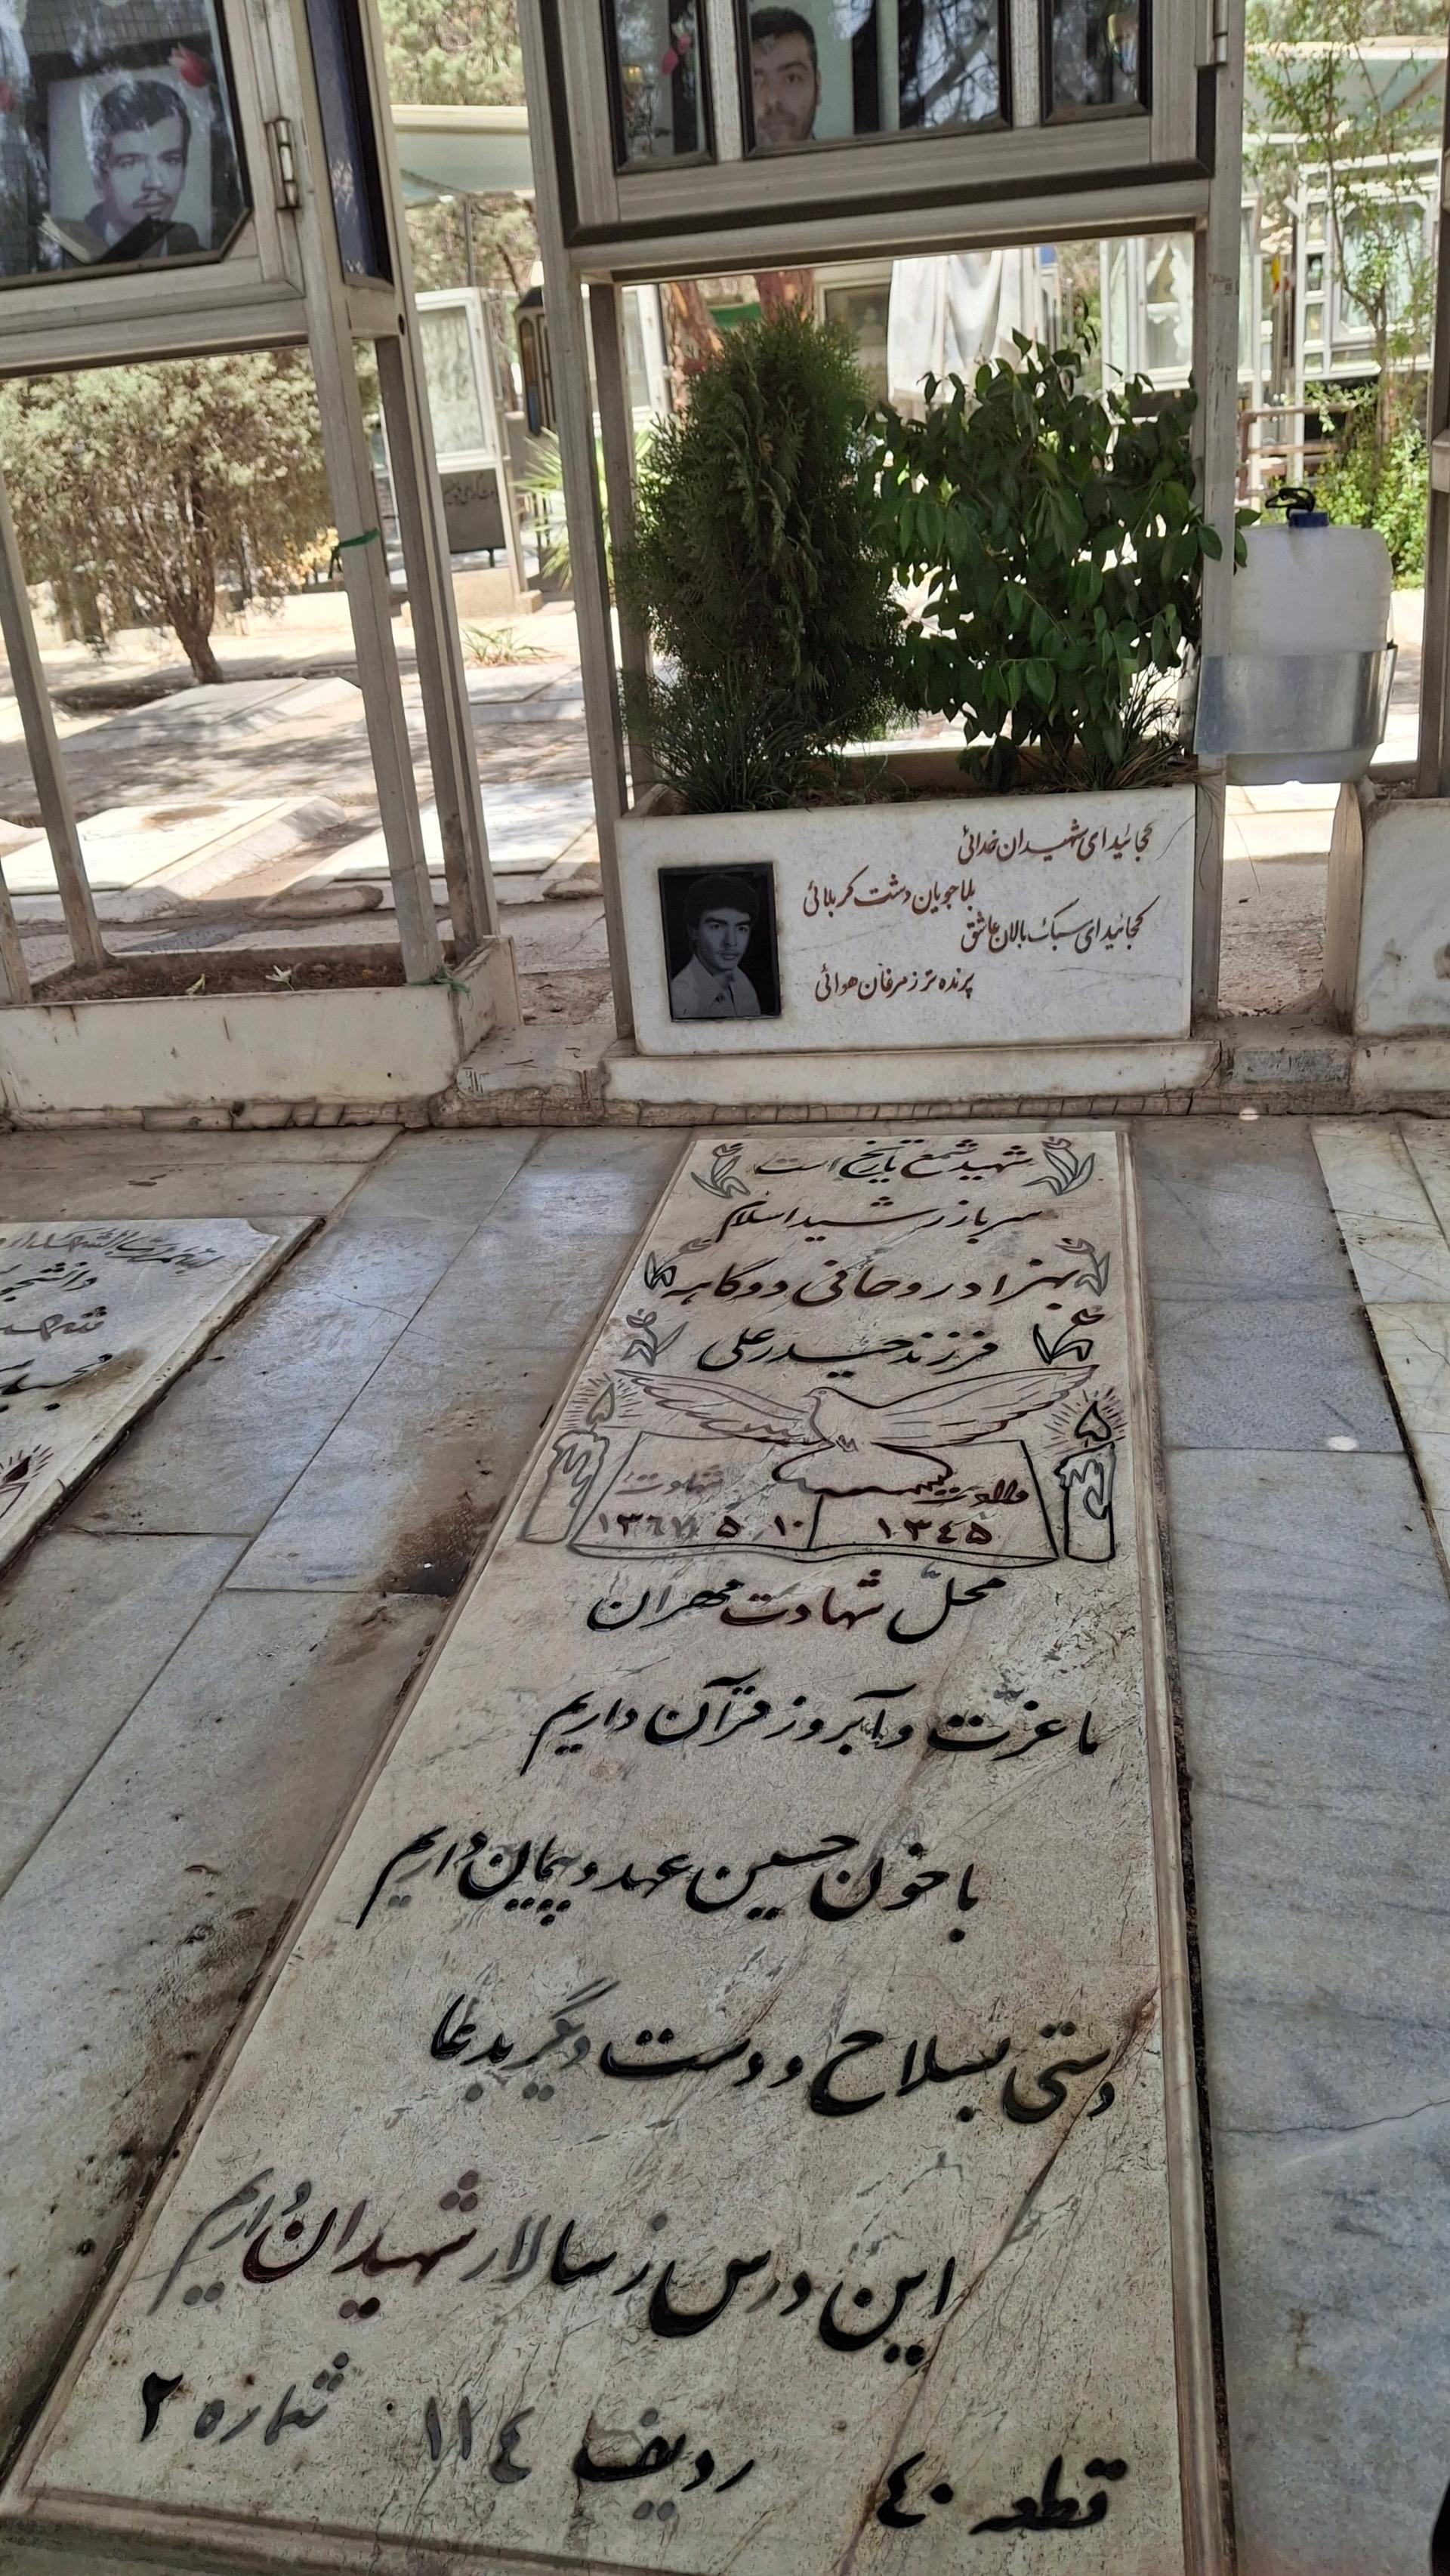 کجائید ای شهیدان خدائی
بلاجویان دشت کربلائی
کجائید ای سبک بالان عاشق
پرنده تر ز مرغان هوائی
شهید شمع تاریخ است
سرباز رشید اسلام
بهزاد روحانی دوگاهه
فرزند حیدرعلی
ولادت شهادت
۱۳٤۵ ۱۰ ۵ ۱۳٦۷
محلّ شهادت مهران
ما عزت و آبرو ز قرآن داریم
با خون حسین عهد و پیمان داریم
دستی بسلاح و دست دیگر بدعا
این درس ز سالار شهیدان داریم
قطعه ٤۰ ردیف ۱۱٤ شماره ۲
شهید